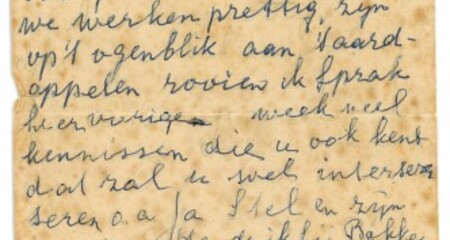 we werken prettig, zijn
op't ogenblik aan 't aard-
appelen rooien ik sprak
hier vorige week veel
kennissen die u ook kent
dat zal u wel interes
seren o.a Ja Stel en zijn
Bakke